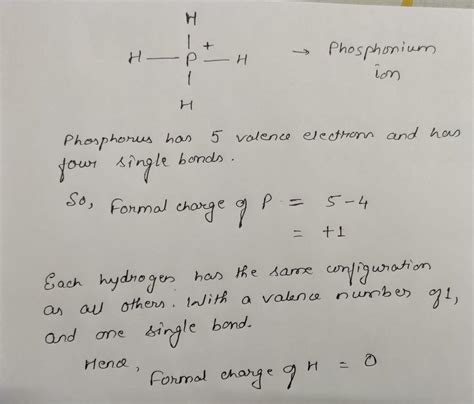 H
H — P⁺ — H → Phosphonium
ion
H
Phosphorus has 5 valence electrons and has
four single bonds.
So, Formal charge of P = 5-4
= +1
Each hydrogen has the same configuration
as all others. With a valence number of 1,
and one single bond.
Hence, Formal charge of H = 0